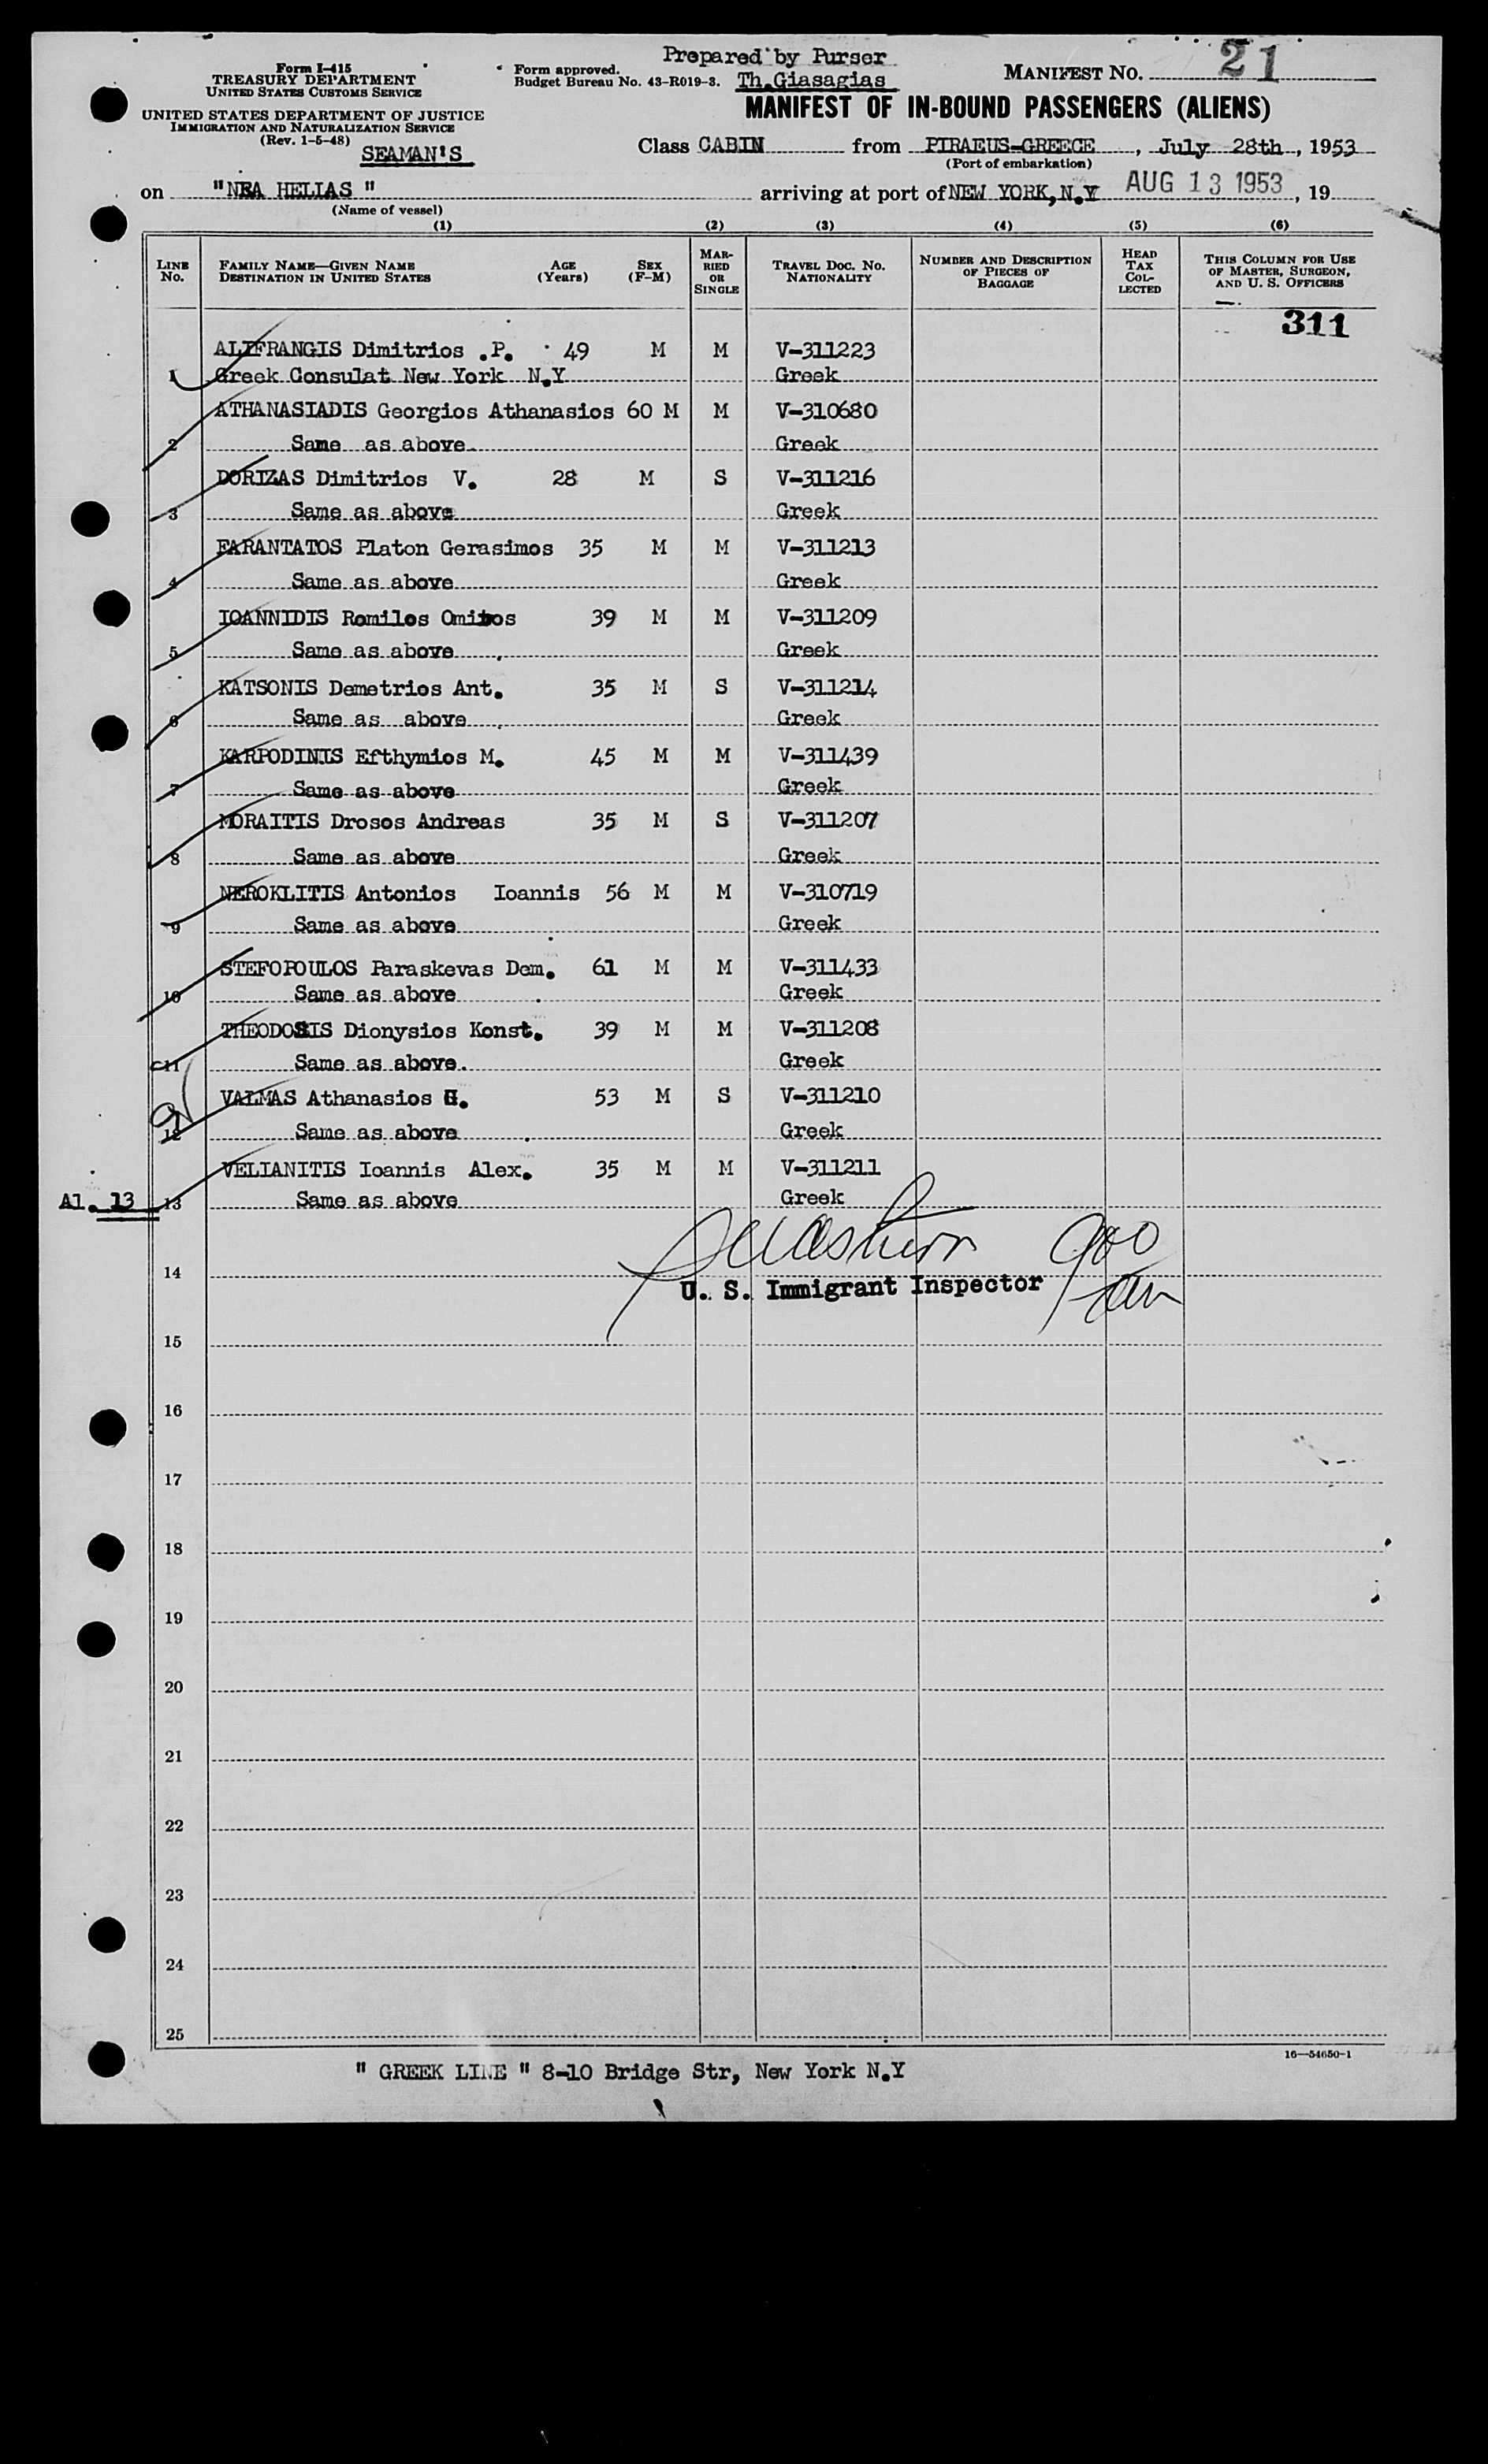 Prepared by Purser
Th.Giasagias
Form I-415
TREASURY DEPARTMENT
UNITED STATES CUSTOMS SERVICE
UNITED STATES DEPARTMENT OF JUSTICE
IMMIGRATION AND NATURALIZATION SERVICE
(Rev. 1-5-48)
SEAMAN'S
Form approved.
Budget Bureau No. 43-R019-3.
MANIFEST NO. 21
MANIFEST OF IN-BOUND PASSENGERS (ALIENS)
Class CABIN from PIRAEUS-GREECE, July 28th, 1953
(Port of embarkation)
on "NEA HELLAS" arriving at port of NEW YORK, N.Y AUG 13 1953, 19
(Name of vessel)
(1) (2) (3) (4) (5) (6)
LINE NO. FAMILY NAME—GIVEN NAME DESTINATION IN UNITED STATES AGE (Years) SEX (F-M) MARRIED OR SINGLE TRAVEL DOC. NO. NATIONALITY NUMBER AND DESCRIPTION OF PIECES OF BAGGAGE HEAD TAX COLLECTED THIS COLUMN FOR USE OF MASTER, SURGEON, AND U. S. OFFICERS
311
ALIFRANGIS Dimitrios .P. 49 M M V-311223
1 Greek Consulat New York N.Y Greek
ATHANASIADIS Georgios Athanasios 60 M M V-310680
2 Same as above Greek
DORIZAS Dimitrios V. 28 M S V-311216
3 Same as above Greek
FARANTATOS Platon Gerasimos 35 M M V-311213
4 Same as above Greek
IOANNIDIS Romilos 39 M M V-311209
5 Same as above Greek
KATSONIS Demetrios Ant. 35 M S V-311214
6 Same as above Greek
KARPODINIS Efthymios M. 45 M M V-311439
7 Same as above Greek
MORAITIS Drosos Andreas 35 M S V-311207
8 Same as above Greek
NEROKLITIS Antonios Ioannis 56 M M V-310719
9 Same as above Greek
STEFOPOULOS Paraskevas Dem. 61 M M V-311433
10 Same as above Greek
THEODOSIS Dionysios Konst. 39 M M V-311208
11 Same as above. Greek
VALMAS Athanasios 53 M S V-311210
12 Same as above Greek
VELIANITIS Ioannis Alex. 35 M M V-311211
Al. 13 13 Same as above Greek
900
14
U. S. Immigrant Inspector
15
16
17
18
19
20
21
22
23
24
25
16—54650-1
" GREEK LINE " 8-10 Bridge Str, New York N.Y